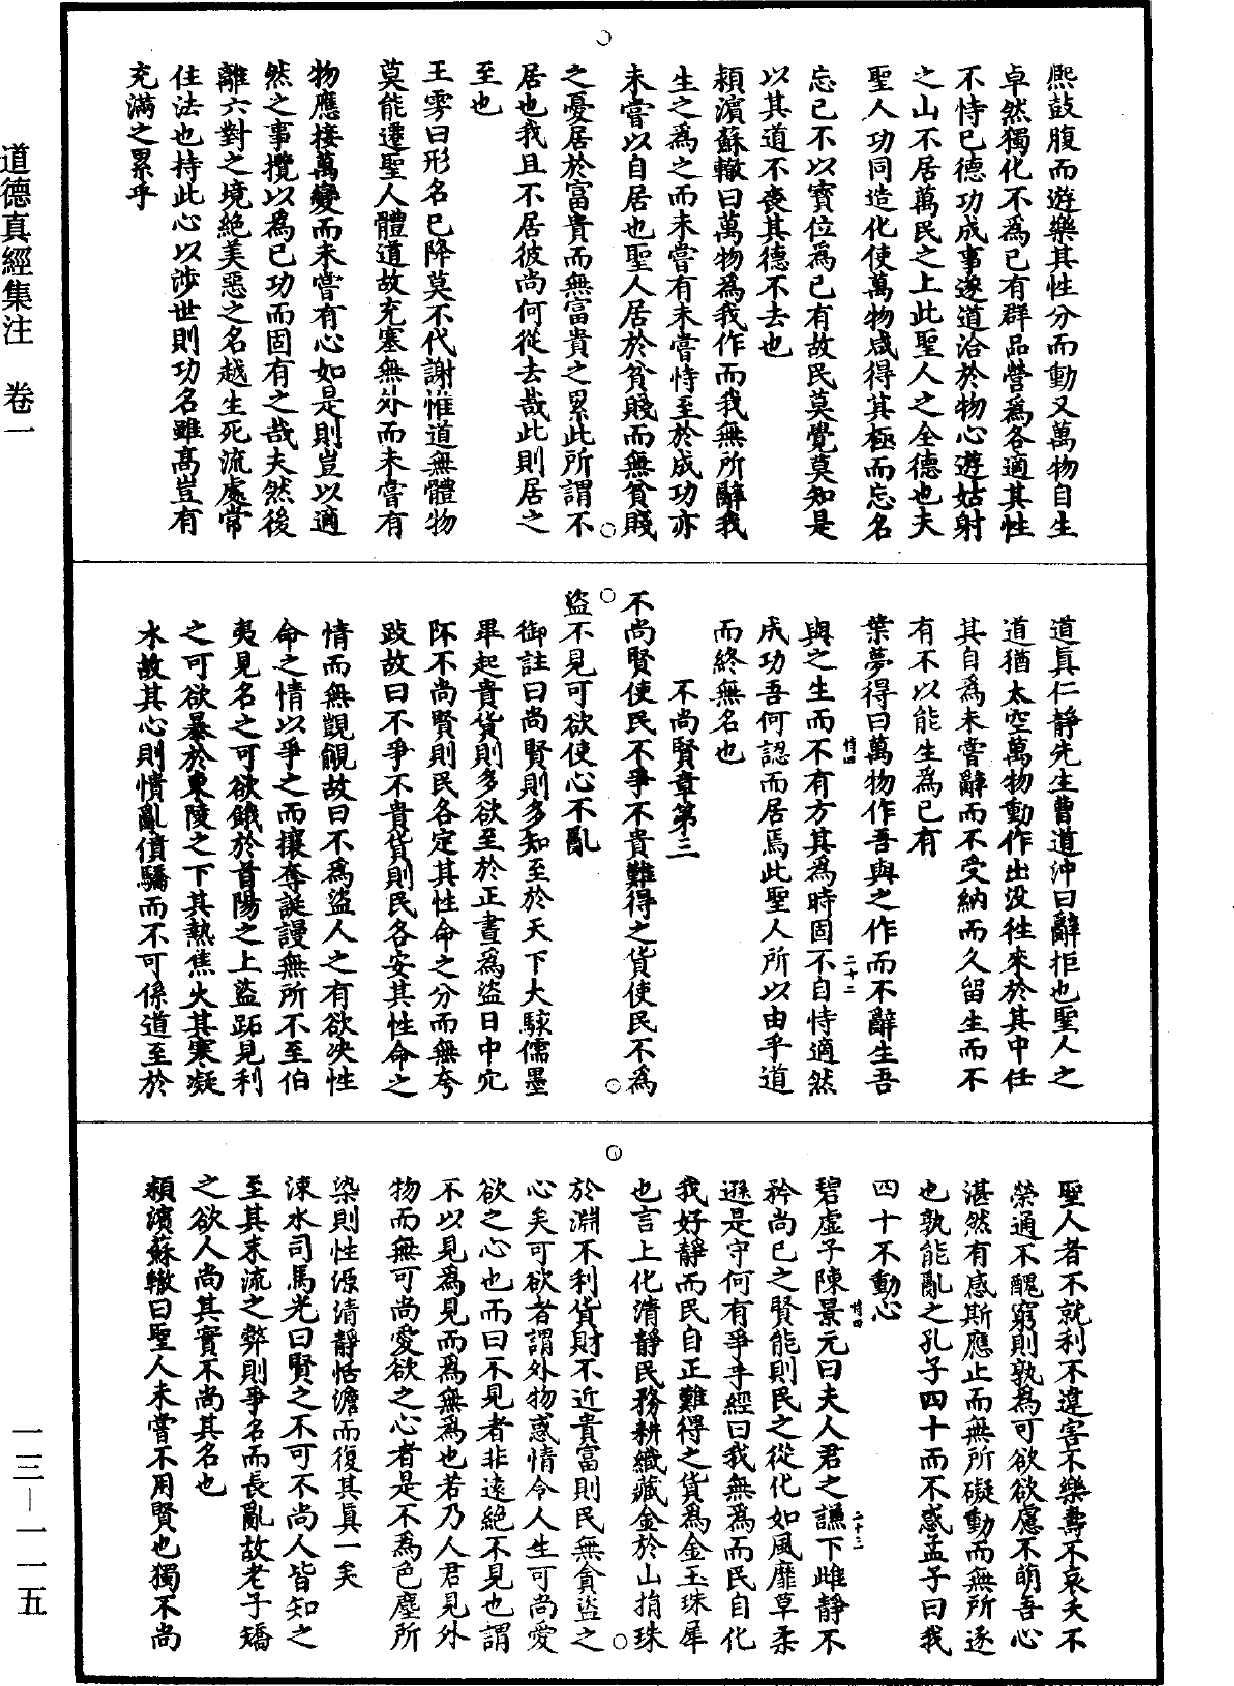 熈鼓腹而遊樂其性分而動又萬物自生
卓然獨化不為已有群品營為各適其性
不恃已德功成事遂道洽於物心遊姑射
之山不居萬民之上此聖人之全德也夫
聖人功同造化使萬物咸得其極而忘名
忘已不以寶位為已有故民莫覺莫知是
以其道不喪其德不去也
頴濵蘇轍曰萬物為我作而我無所辭我
生之為之而未嘗有未嘗恃至於成功亦
未嘗以自居也聖人居於貧賤而無貧賤
之憂居於富貴而無富貴之累此所謂不
居也我且不居彼尚何從去哉此則居之
至也
王雱曰形名已降莫不代謝惟道無體物
莫能遷聖人體道故充塞無外而未嘗有
物應接萬變而未嘗有心如是則豈以適
然之事攬以為已功而固有之哉夫然後
離六對之境絶美惡之名越生死流處常
住法也持此心以涉世則功名雖髙豈有
充滿之累乎
道真仁靜先生曹道沖曰辭拒也聖人之
道猶太空萬物動作出没徃來於其中任
其自為未嘗辭而不受納而久留生而不
有不以能生為已有
葉夢得曰萬物作吾與之作而不辭生吾
與之生而不有方其為時固不自恃適然
成功吾何認而居焉此聖人所以由乎道
而終無名也
不尚賢章第三
不尚賢使民不爭不貴難得之貨使民不為
盜不見可欲使心不亂
御註曰尚賢則多知至於天下大駭儒墨
畢起貴貨則多欲至於正晝為盜日中穴
阫不尚賢則民各定其性命之分而無夸
跂故曰不爭不貴貨則民各安其性命之
情而無覬覦故曰不為盜人之有欲决性
命之情以爭之而攘奪誕謾無所不至伯
夷見名之可欲餓於首陽之上盜跖見利
之可欲暴於東陵之下其熱焦火其寒凝
氷故其心則憒亂僨驕而不可係道至於
聖人者不就利不違害不樂壽不哀夭不
榮通不醜窮則孰為可欲欲慮不萌吾心
湛然有感斯應止而無所礙動而無所逐
也孰能亂之孔子四十而不惑孟子曰我
四十不動心
碧虛子陳景元曰夫人君之謙下雌靜不
矜尚已之賢能則民之從化如風靡草柔
遜是守何有爭乎經曰我無為而民自化
我好靜而民自正難得之貨為金玉珠犀
也言上化清靜民務耕織藏金於山捐珠
於淵不利貨財不近貴富則民無貪盜之
心矣可欲者謂外物惑情令人生可尚愛
欲之心也而曰不見者非遠絶不見也謂
不以見為見而為無為也若乃人君見外
物而無可尚愛欲之心者是不為色塵所
染則性源清靜恬澹而復其真一矣
涑水司馬光曰賢之不可不尚人皆知之
至其末流之弊則爭名而長亂故老子矯
之欲人尚其實不尚其名也
頴濵蘇轍曰聖人未嘗不用賢也獨不尚
道德真經集注 卷一
一三—一一五